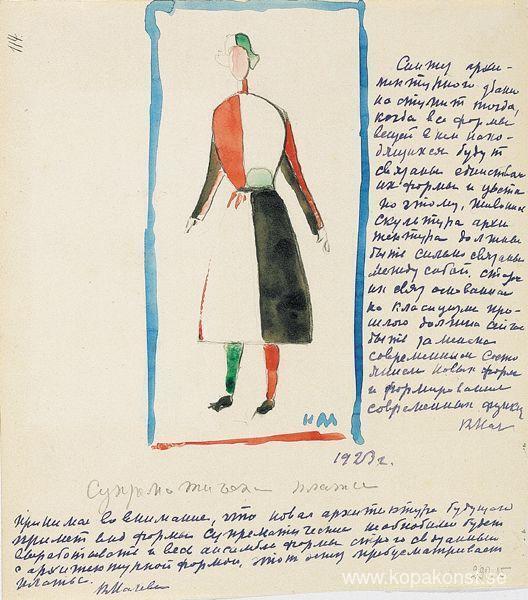 114.
Синтез архи-
тектурного здания
наступит тогда,
когда все формы
вещей в нем нахо-
дящихся будут
связаны единством
их формы и цвета
по этому, живопись
скульптура архи
тектура должны
быть сильно связаны
между собой,
связ основанная
на класицизме про-
шлого должна
быть заменена
современным состо
янием новых форм
и формирования
современных
К Мал
1923 г.
принимая во внимание, что новая архитектура будущего
примет вид формы Супрематические необходимо будет
выработать и весь ансамбль формы строго связанный
с архитектурной формою, этот эскиз предусматривает
платье.
К Малеви
www.kopakonst.se